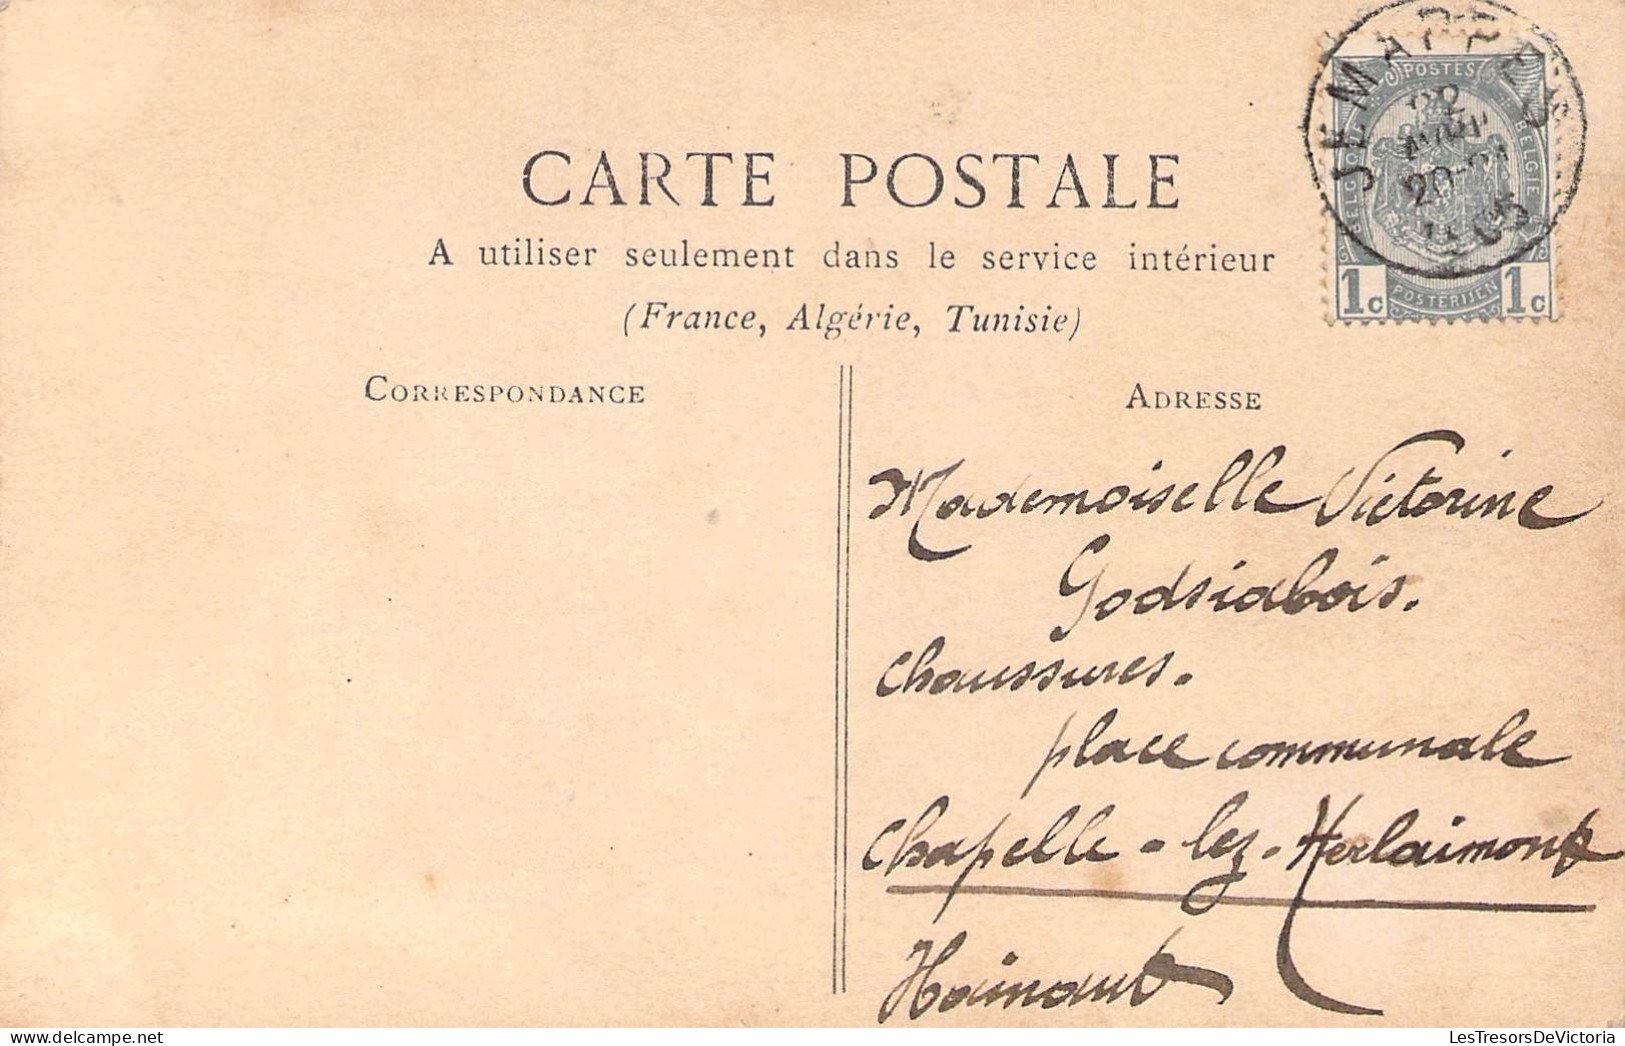 JEMAPPES
22
AOUT
20-21
1905
POSTES
BELGIQUE
BELGIE
1c POSTERIJEN 1c
CARTE POSTALE
A utiliser seulement dans le service intérieur
(France, Algérie, Tunisie)
CORRESPONDANCE
ADRESSE
Mademoiselle Victorine
Godsiabois.
Chaussures.
place communale
Chapelle-lez-Herlaimont
Hainaut
LesTresorsDeVictoria